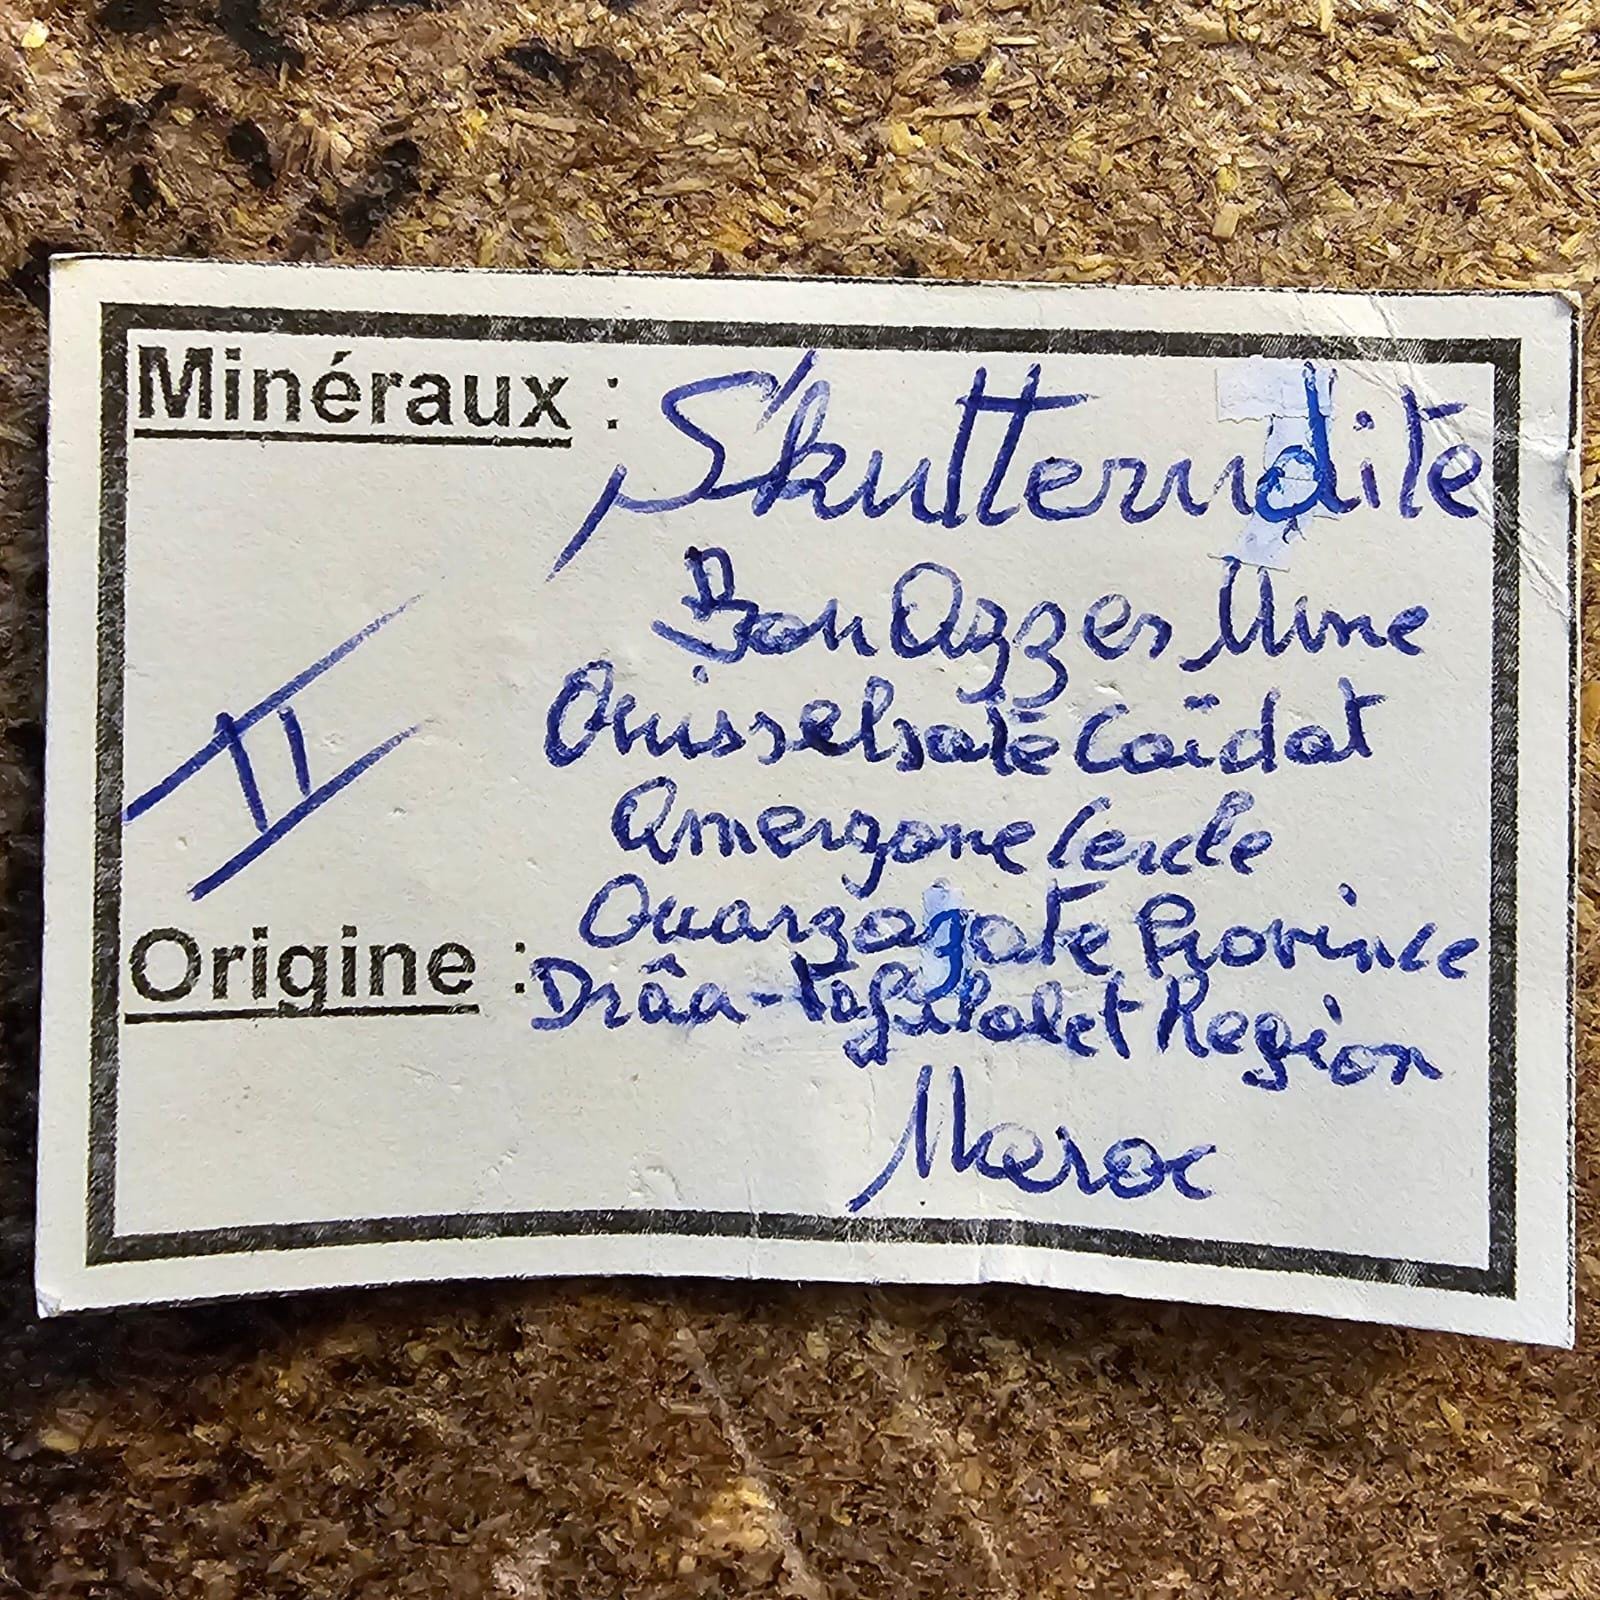 Minéraux : Skutterudite
Bou Azzer Mine
Ouisselsate Caïdat
II
Amerzgane Cercle
Ouarzazate Province
Origine : Drâa-Tafilalet Region
Maroc